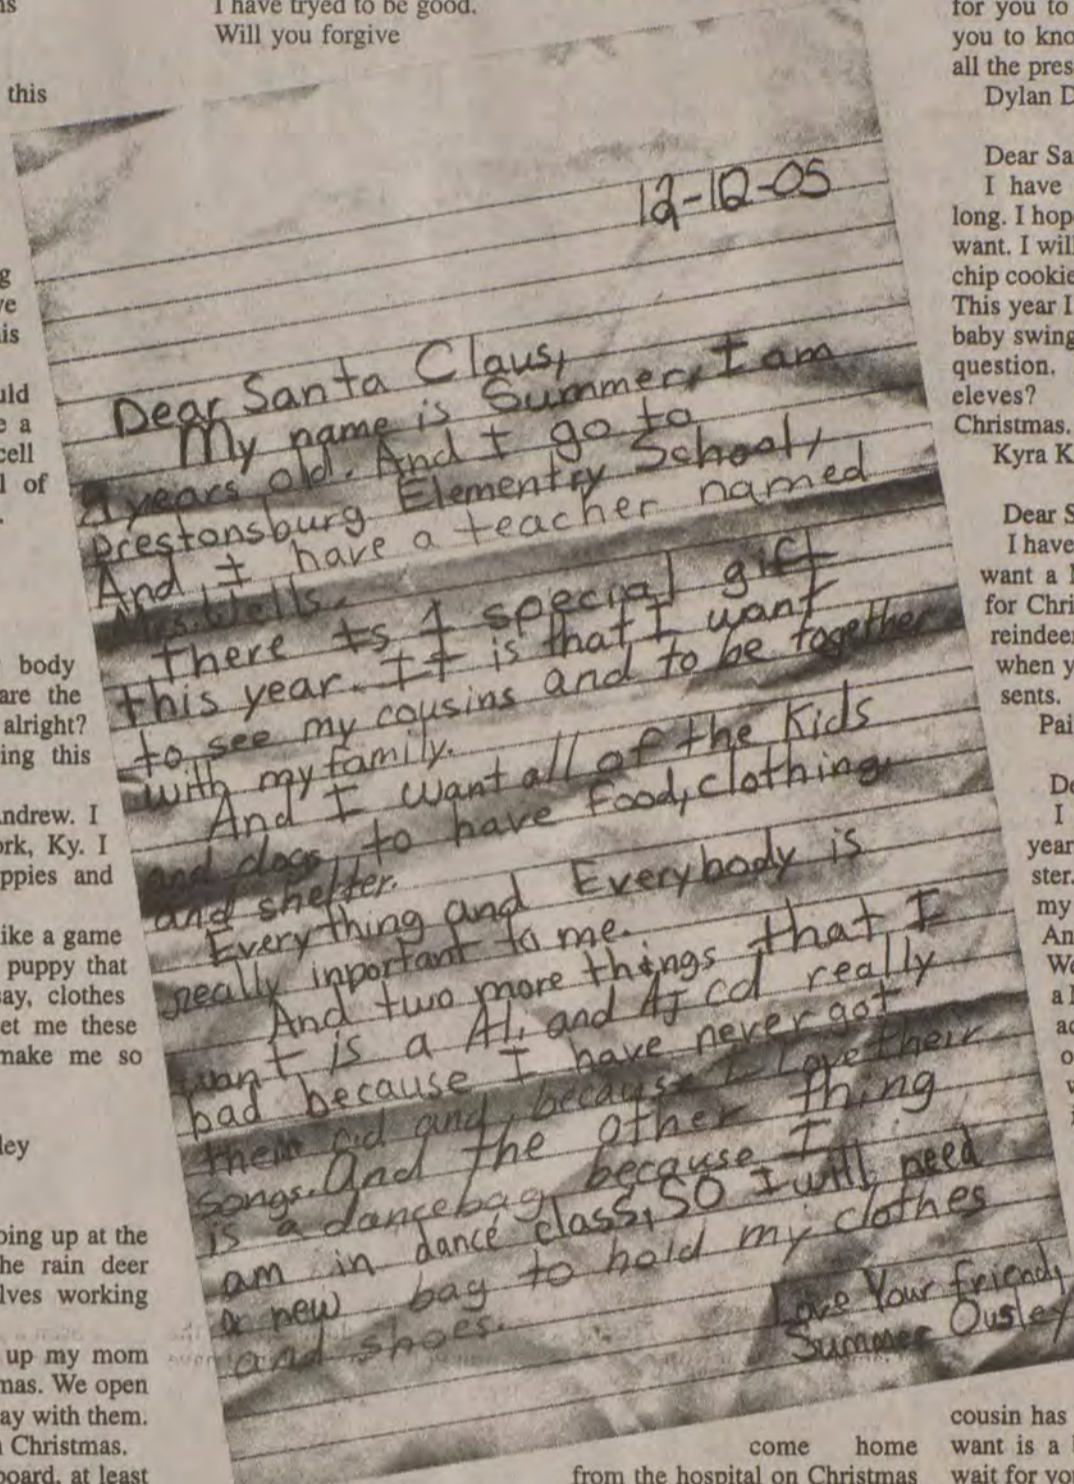 ns
this
g
ve
is
uld
e a
cell
l of
body
are the
alright?
ing this
Andrew. I
ork, Ky. I
ppies and
ike a game
puppy that
say, clothes
et me these
make me so
ley
oing up at the
he rain deer
lves working
up my mom
mas. We open
ay with them.
n Christmas.
board, at least
I have tried to be good.
Will you forgive
12-12-05
Dear Santa Claus,
My name is Summer, I am
9 years old. And I go to
Prestonsburg Elementry School,
And I have a teacher named
Mrs. Wells.
There Is 1 special gift
this year. It is that I want
to see my cousins and to be together
with my family.
And I want all of the Kids
and dogs, to have food, clothing,
and shelter.
Everything and Everybody is
really inportant to me.
And two more things that I
want is a Al, and AJ cd really
bad because I have never got
them cd and because I Love their
songs. And the other thing
is a dancebag because I
am in dance class, SO I will need
a new bag to hold my clothes
and shoes.
Love Your friend,
Summer Ousley
come home
from the hospital on Christmas
for you to
you to kno
all the pres
Dylan D
Dear Sa
I have
long. I hop
want. I will
chip cookie
This year I
baby swing
question.
eleves?
Christmas.
Kyra K
Dear S
I have
want a
for Chri
reindeer
when y
sents.
Pai
De
I
year
ster.
my
An
We
a
ac
cousin has
want is a
wait for yo